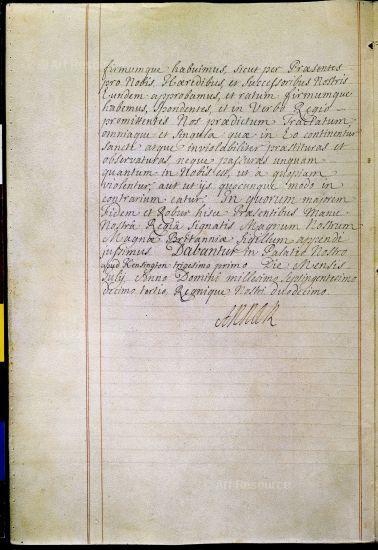 firmumque habuimus, sicut per Præsentes
pro Nobis, Hæredibus, et Successoribus Nostris
Eundem approbamus, et ratum firmumque
habemus, Spondentes, et in Verbo Regio
promittentes Nos prædictum Tractatum
omniaque et Singula quæ in Eo continentur
Sancte atque inviolabiliter præstituras et
observaturas neque passuras unquam
quantum in Nobis est, ut a quoquam
violentur, aut ut ijs quocunque modo in
contrarium eatur. In quorum majorem
fidem et Robur hisce Præsentibus Manu
Nostrâ Regiâ Signatis Magnum Nostrum
Magnæ Britanniæ Sigillum appendi
jussimus. Dabantur in Palatio Nostro
apud Kensington trigesimo primo Die Mensis
July, Anno Domini millesimo Septingentesimo
decimo tertio, Regnique Nostri duodecimo.
ANNE R
© Art Resource
© Art Resource